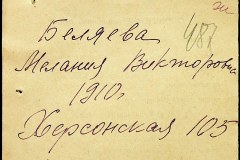 Беляева 487
Мелания Викторовна
1910г
Херсонская 105